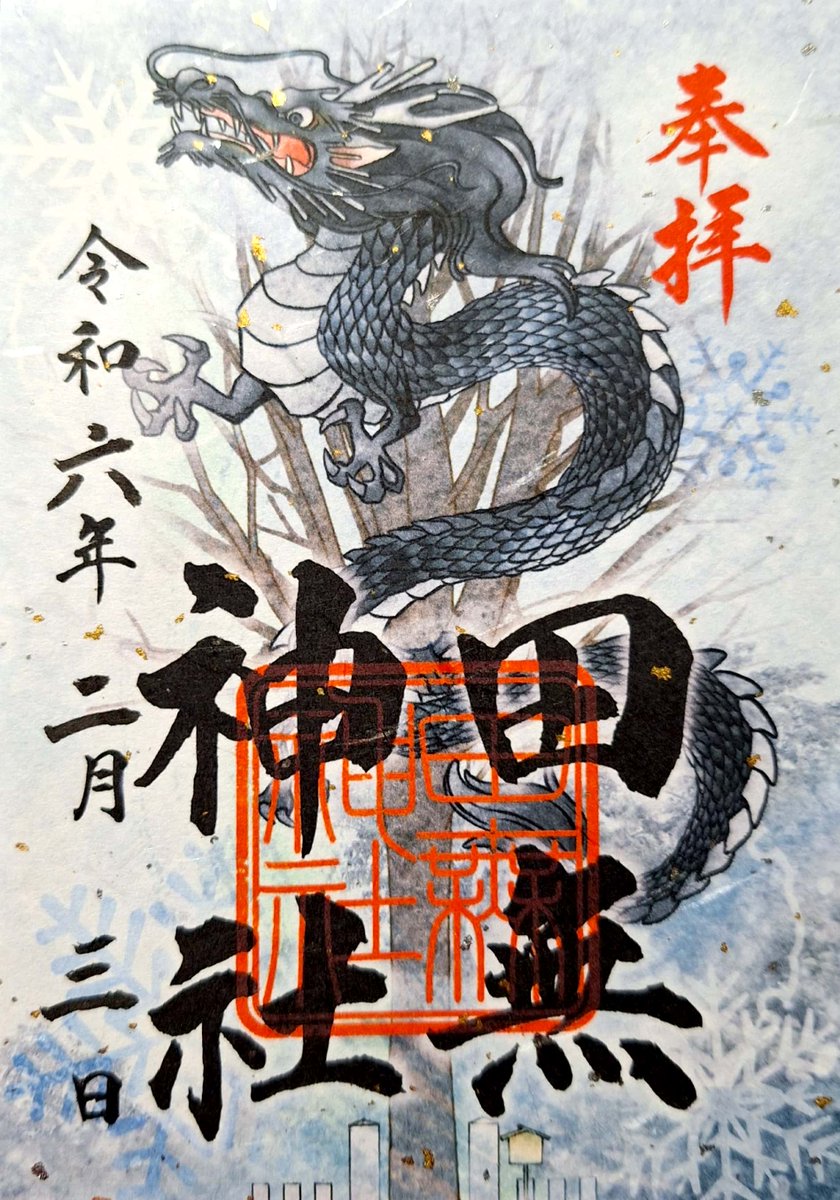 奉拝
田無
神社
令和六年二月三日
田無
神社